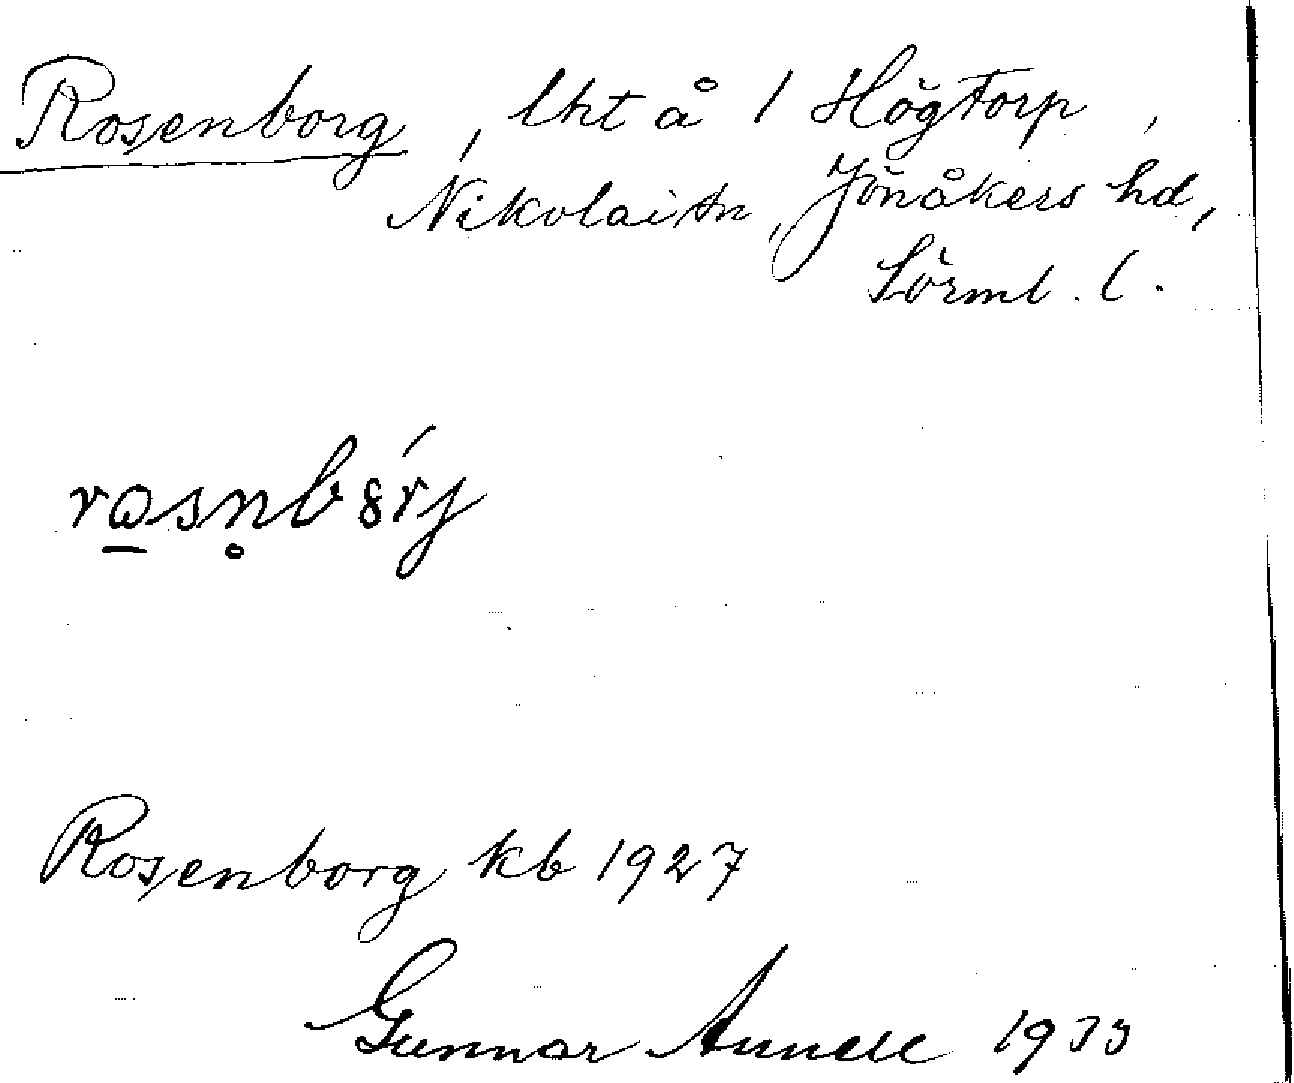 Rosenborg, lht å 1 Högtorp,
Nikolai sn, Jönåkers hd,
Sörml. l.
rɷsn̥bȣ́rj
Rosenborg kb 1927
Gunnar 1933